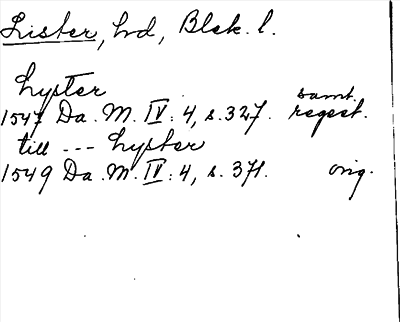 Lister, hd, Blek. l.
Lyster
1547 Da. M. IV: 4, s. 327. samt. regest.
till --- Lyster
1549 Da. M. IV: 4, s. 371. orig.